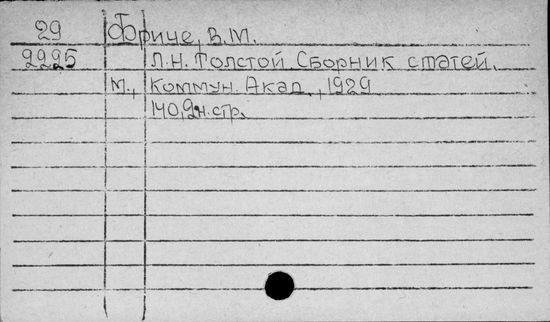 29 Фриче, В.М.
2225 Л.Н. Толстой Сборник статей.
М., Коммун. Акад., 1929
140, 2н. стр.